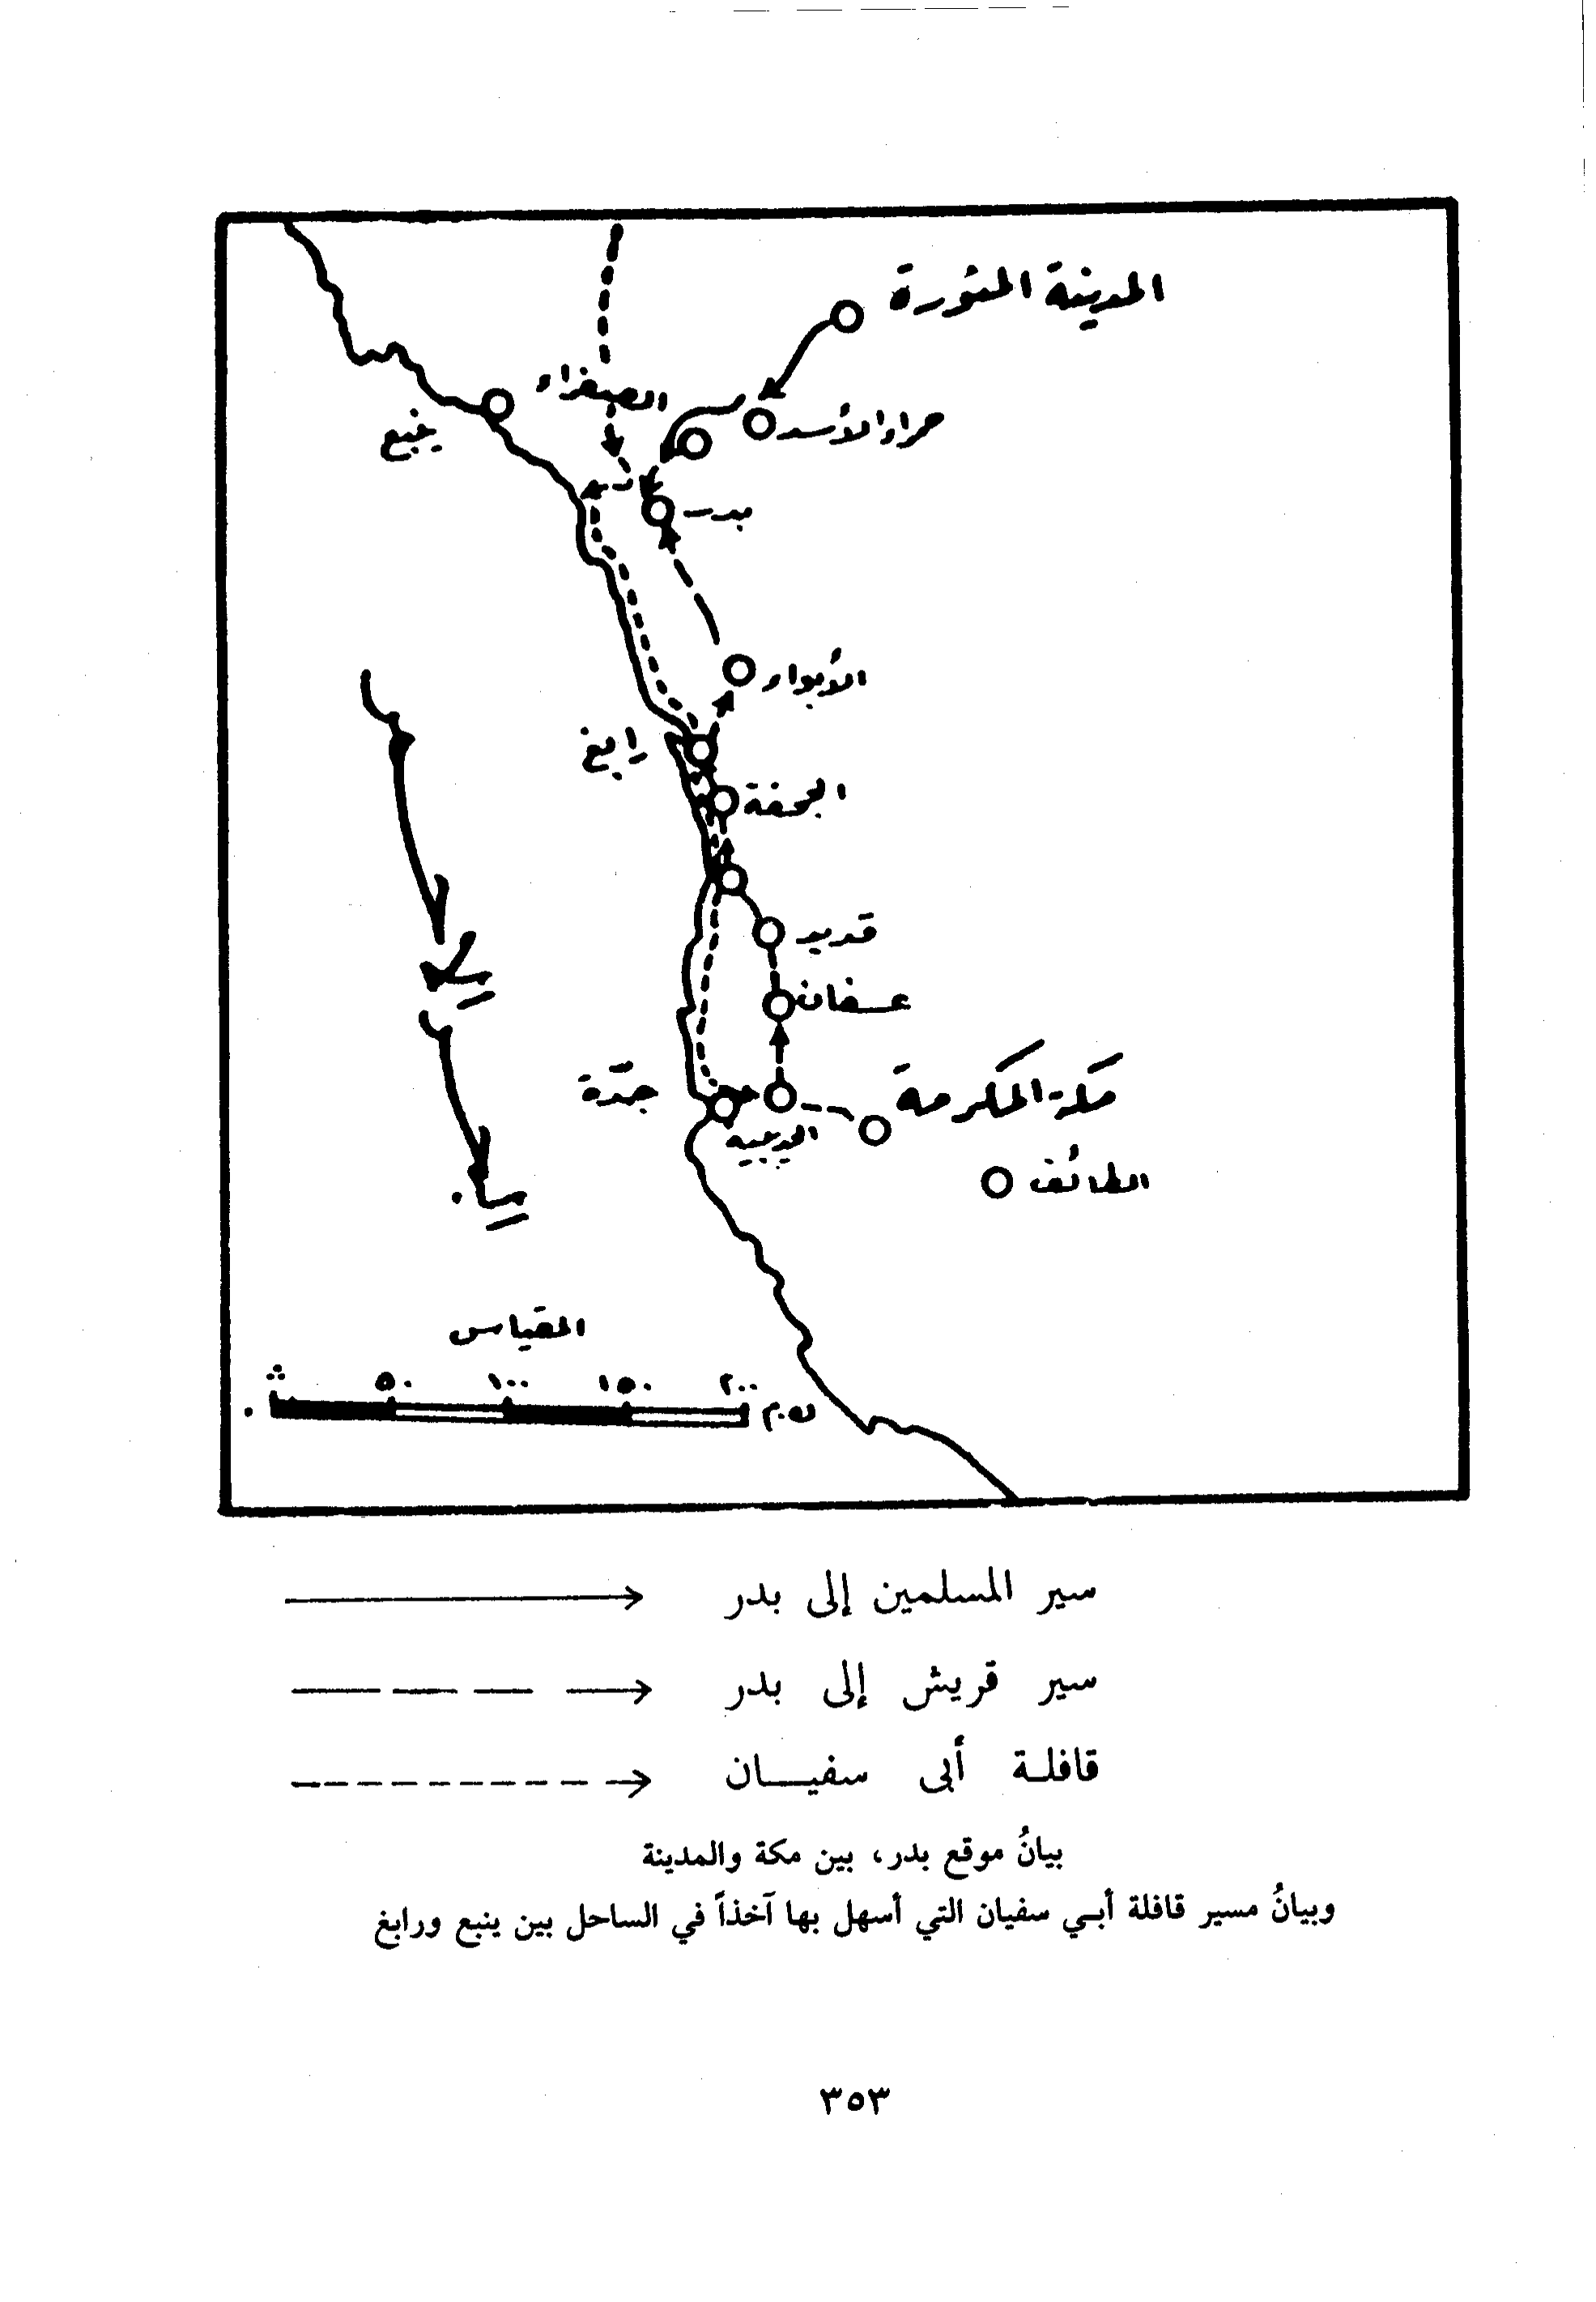 المدينة المنورة
الصفراء
حمراء الأسد
ينبع
بدر
الأبواء
رابغ
الجحفة
قديد
عسفان
جدّة
مكة المكرمة
الطائف
المقياس
٥٠ ١٠٠ ١٥٠ ٢٠٠
سير المسلمين إلى بدر
سير قريش إلى بدر
قافلة أبى سفيان
بيانُ موقع بدر، بين مكة والمدينة
وبيانُ مسير قافلة أبي سفيان التي أسهل بها آخذاً في الساحل بين ينبع ورابغ
٣٥٣